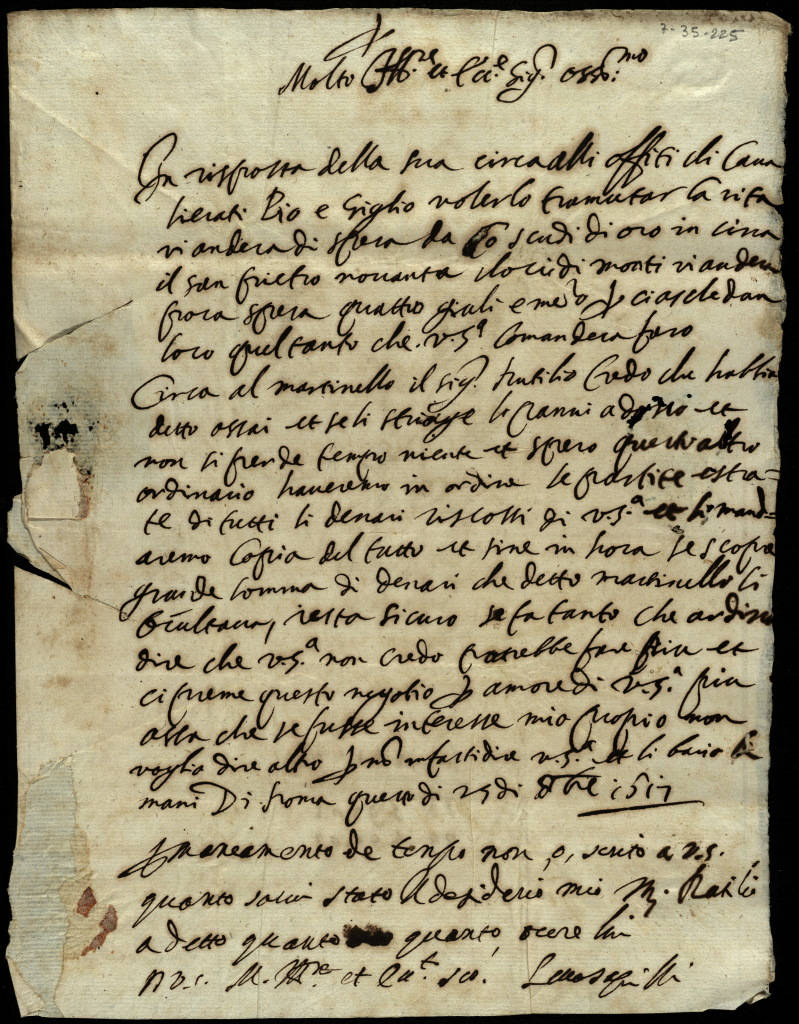 7-35-225
Molto Ill.re et Ecc.e Sig.r oss.mo
In risposta della sua circa alli offiti di Caua
lierati Pio e Giglio volerlo tramutar la vita
vi andera di spesa da scudi di oro in circa
il san pietro novanta di monti vi andera
spesa quattro giuli e mezo p ciaschedun
loro quel tanto che v.s.a Comandera faro
Circa al martinello il sig.r rutilio Credo che habbia
detto assai et se li stringe li panni adosso et
non si perde tempo niente et spero quest altro
ordinario haveremo in ordine le partite estra=
te di tutti li denari riscossi di v.s.a et li mand=
aremo Copia del tutto et sine in hora se scopre
grande somma di denari che detto martinello li
Ocultava, resta sicuro se fa tanto che ardisco
dire che v.s.a non credo potrebbe fare piu et
ci preme questo negotio p amore di v.s.a piu
assa che se fusse interesse mio proprio non
voglio dire altro p nō infastidire v.s.a et li bacio le
mani Di roma questo di 25 di 1617
p mancamento de tempo non o, scrito a v.s.
quanto saria stato el desiderio mio m. Rutilio
a detto quanto quanto ocere
D v.s. M. Ill.re et